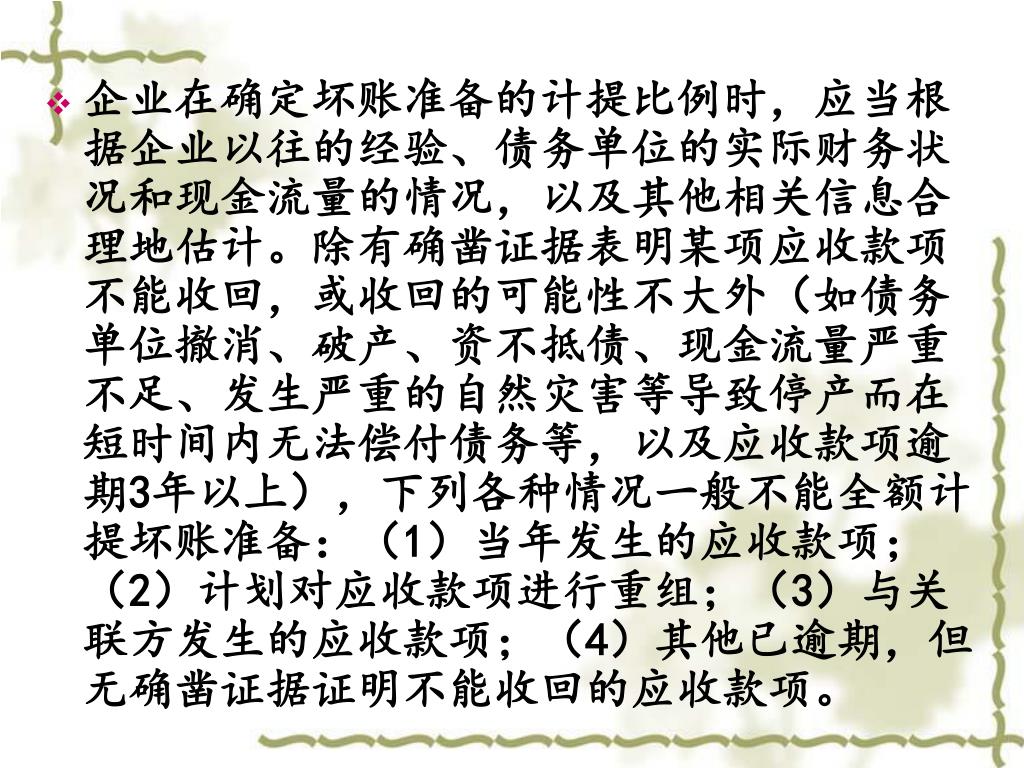 企业在确定坏账准备的计提比例时，应当根
据企业以往的经验、债务单位的实际财务状
况和现金流量的情况，以及其他相关信息合
理地估计。除有确凿证据表明某项应收款项
不能收回，或收回的可能性不大外（如债务
单位撤消、破产、资不抵债、现金流量严重
不足、发生严重的自然灾害等导致停产而在
短时间内无法偿付债务等，以及应收款项逾
期3年以上），下列各种情况一般不能全额计
提坏账准备：（1）当年发生的应收款项；
（2）计划对应收款项进行重组；（3）与关
联方发生的应收款项；（4）其他已逾期，但
无确凿证据证明不能收回的应收款项。